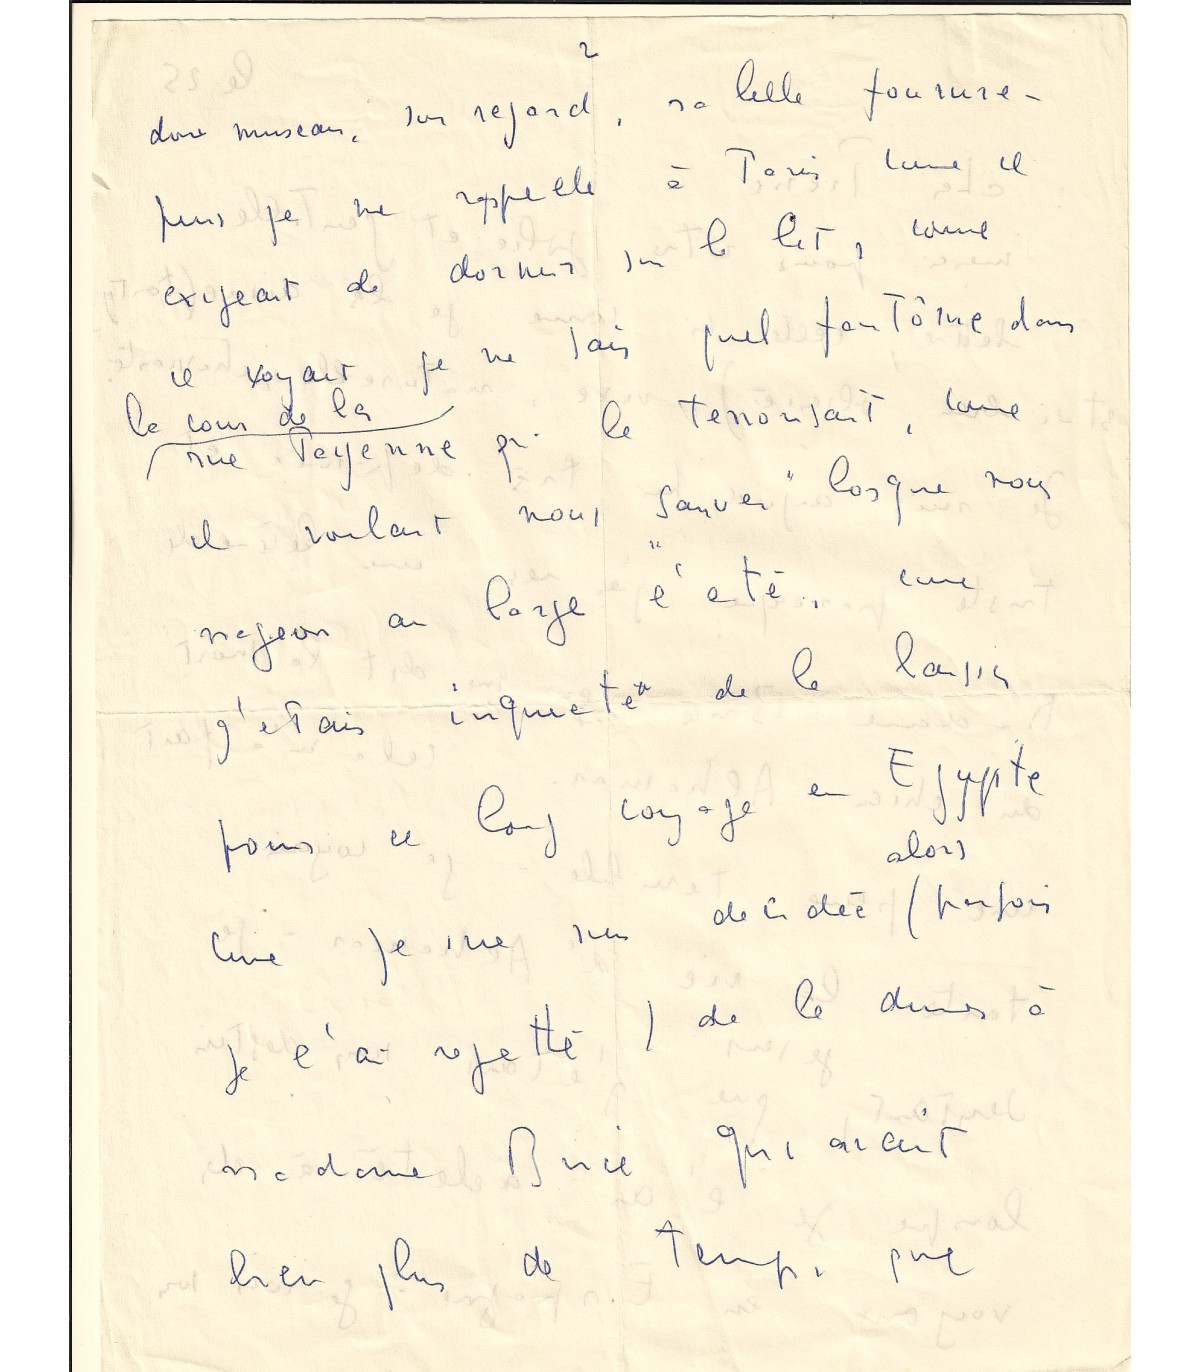 2
doux museau, son regard, sa belle fourrure -
puis je me rappelle à Paris comme il
exigeait de dormir sur le lit, comme
il voyait je ne sais quel fantôme dans
la cour de la
rue Payenne qui le terrorisait, comme
il voulait nous "sauver" lorsque nous
nageions au large l'été, comme
j'étais inquiète de le laisser
pour ce long voyage en Egypte
alors
comme je me suis décidée (parfois
je l'ai regretté) de le donner à
madame Brice qui avait
bien plus de temps que